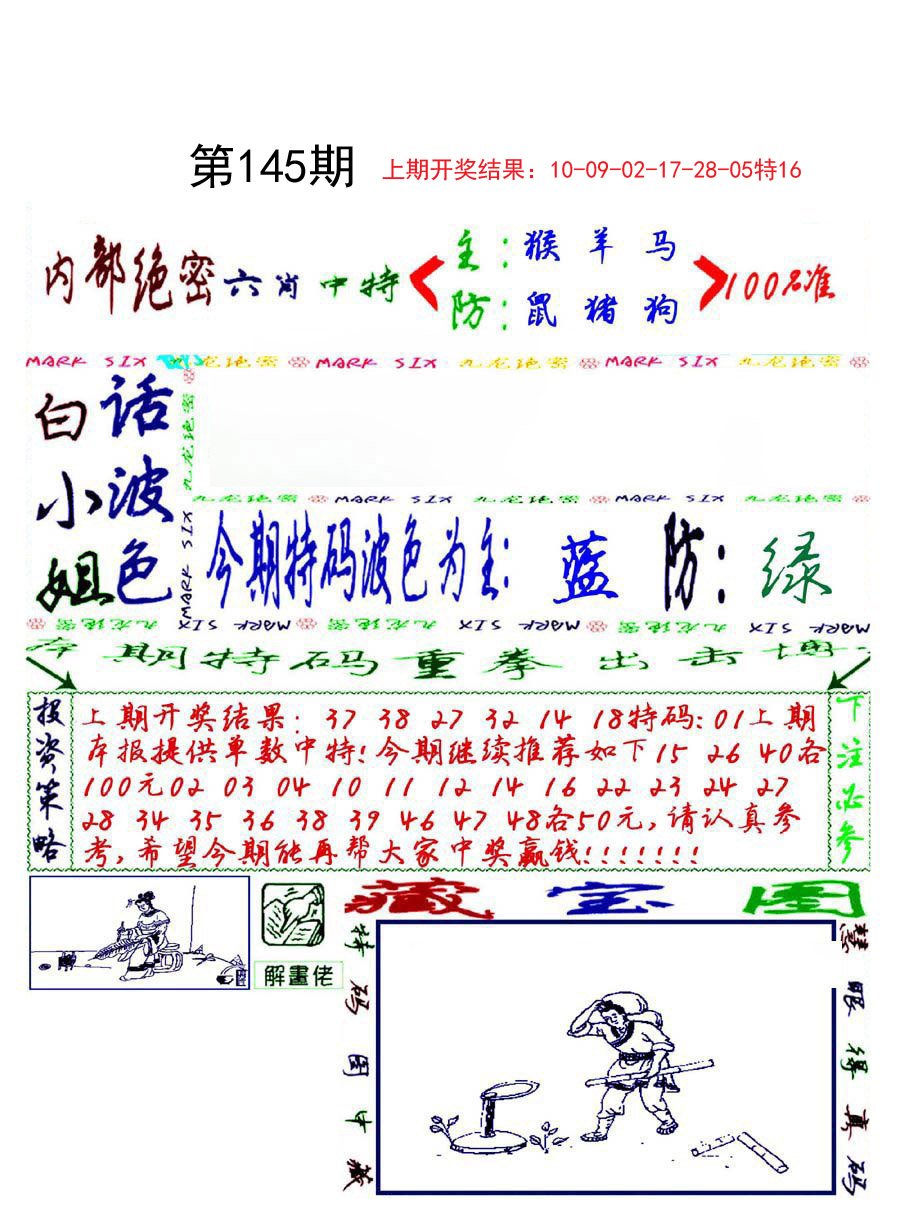 第145期 上期开奖结果：10-09-02-17-28-05特16
内部绝密六肖中特
主：猴羊马
防：鼠猪狗
100%准
MARK SIX 九龙绝密 MARK SIX 九龙绝密 MARK SIX 九龙绝密
九龙绝密 MARK SIX
白小姐
话波色
九龙绝密 MARK SIX 九龙绝密 MARK SIX 九龙绝密
今期特码波色为主：蓝 防：绿
MARK SIX 九龙绝密 MARK SIX 九龙绝密 MARK SIX 九龙绝密
期特码重拳出击
投资策略
上期开奖结果：37 38 27 32 14 18特码：01上期
本报提供单数中特！今期继续推荐如下15 26 40各
100元02 03 04 10 11 12 14 16 22 23 24 27
28 34 35 36 38 39 46 47 48各50元，请认真参
考，希望今期能再帮大家中奖赢钱！！！！！！！
下注必参
解畫佬
藏宝图
特码图中藏
慧眼得真码